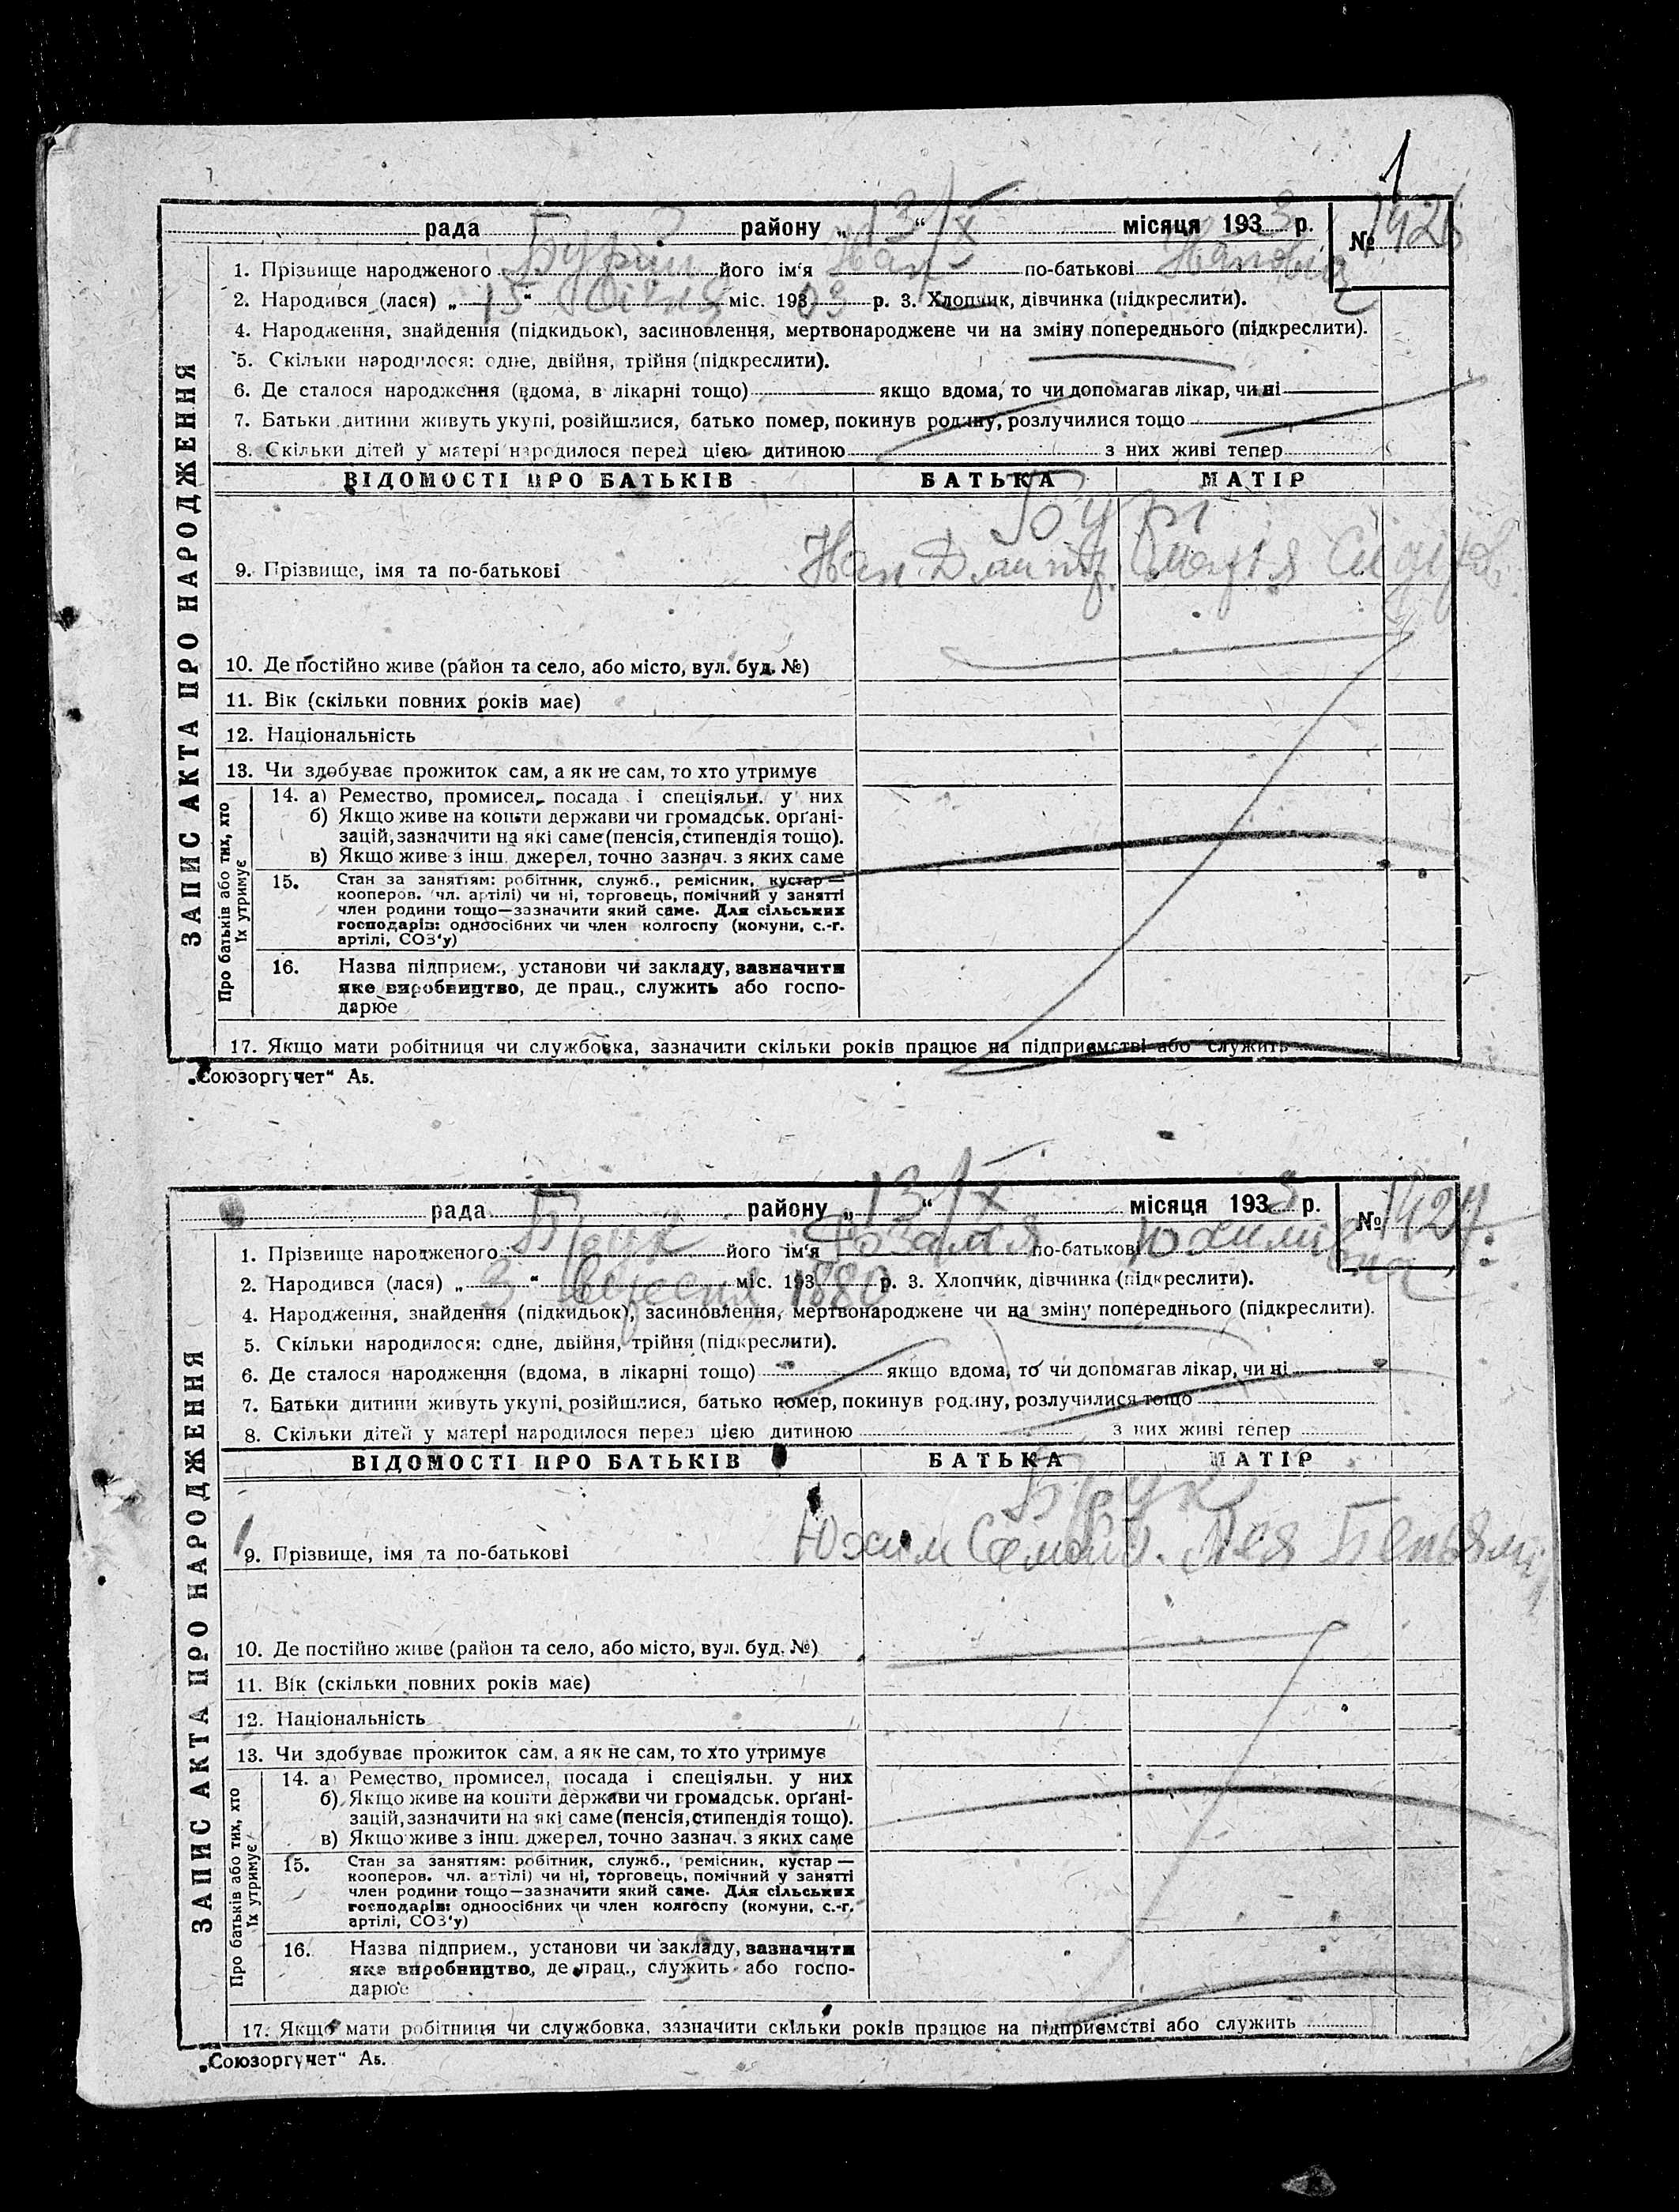 1
рада району „13/X“ місяця 1933 р. №
1. Прізвище народженого його ім'я Іван по-батькові Іванович
2. Народився (лася) „15“ Січня міс. 193 03 р. 3. Хлопчик, дівчинка (підкреслити).
4. Народження, знайдення (підкидьок), засиновлення, мертвонароджене чи на зміну попереднього (підкреслити).
5. Скільки народилося: одне, двійня, трійня (підкреслити).
6. Де сталося народження (вдома, в лікарні тощо) якщо вдома, то чи допомагав лікар, чи ні
7. Батьки дитини живуть укупі, розійшлися, батько помер, покинув родину, розлучилися тощо
8. Скільки дітей у матері народилося перед цією дитиною з них живі тепер
ВІДОМОСТІ ПРО БАТЬКІВ БАТЬКА МАТІР
9. Прізвище, імя та по-батькові Іван Дмитр.
10. Де постійно живе (район та село, або місто, вул. буд. №)
11. Вік (скільки повних років має)
12. Національність
13. Чи здобуває прожиток сам, а як не сам, то хто утримує
Про батьків або тих, хто
їх утримує
14. а) Ремество, промисел, посада і спеціяльн. у них
б) Якщо живе на кошти держави чи громадськ. орґані-
зацій, зазначити на які саме (пенсія, стипендія тощо).
в) Якщо живе з інш. джерел, точно зазнач. з яких саме
15. Стан за заняттям: робітник, служб., ремісник, кустар—
кооперов. (чл. артілі) чи ні, торговець, помічний у занятті
член родини тощо—зазначити який саме. Для сільських
господарів: одноосібних чи член колгоспу (комуни, с.-г.
артілі, СОЗ'у)
16. Назва підприєм., установи чи закладу, зазначити
яке виробництво, де прац., служить або госпо-
дарює
17. Якщо мати робітниця чи службовка, зазначити скільки років працює на підприємстві або служить
ЗАПИС АКТА ПРО НАРОДЖЕННЯ
„Союзоргучет“ А5.
рада району „13/X“ місяця 1933 р. № 1427
1. Прізвище народженого Брук його ім'я Розалія по-батькові Юхимівна
2. Народився (лася) „3“ вересня міс. 193 1880 р. 3. Хлопчик, дівчинка (підкреслити).
4. Народження, знайдення (підкидьок), засиновлення, мертвонароджене чи на зміну попереднього (підкреслити).
5. Скільки народилося: одне, двійня, трійня (підкреслити).
6. Де сталося народження (вдома, в лікарні тощо) якщо вдома, то чи допомагав лікар, чи ні
7. Батьки дитини живуть укупі, розійшлися, батько помер, покинув родину, розлучилися тощо
8. Скільки дітей у матері народилося перед цією дитиною з них живі тепер
ВІДОМОСТІ ПРО БАТЬКІВ БАТЬКА МАТІР
Брук
9. Прізвище, імя та по-батькові Юхим Семіон. Лея Беньямін
10. Де постійно живе (район та село, або місто, вул. буд. №)
11. Вік (скільки повних років має)
12. Національність
13. Чи здобуває прожиток сам, а як не сам, то хто утримує
Про батьків або тих, хто
їх утримує
14. а) Ремество, промисел, посада і спеціяльн. у них
б) Якщо живе на кошти держави чи громадськ. орґані-
зацій, зазначити на які саме (пенсія, стипендія тощо).
в) Якщо живе з інш. джерел, точно зазнач. з яких саме
15. Стан за заняттям: робітник, служб., ремісник, кустар—
кооперов. чл. артілі) чи ні, торговець, помічний у занятті
член родини тощо—зазначити який саме. Для сільських
господарів: одноосібних чи член колгоспу (комуни, с.-г.
артілі, СОЗ'у)
16. Назва підприєм., установи чи закладу, зазначити
яке виробництво, де прац., служить або госпо-
дарює
17. Якщо мати робітниця чи службовка, зазначити скільки років працює на підприємстві або служить
ЗАПИС АКТА ПРО НАРОДЖЕННЯ
„Союзоргучет“ А5.